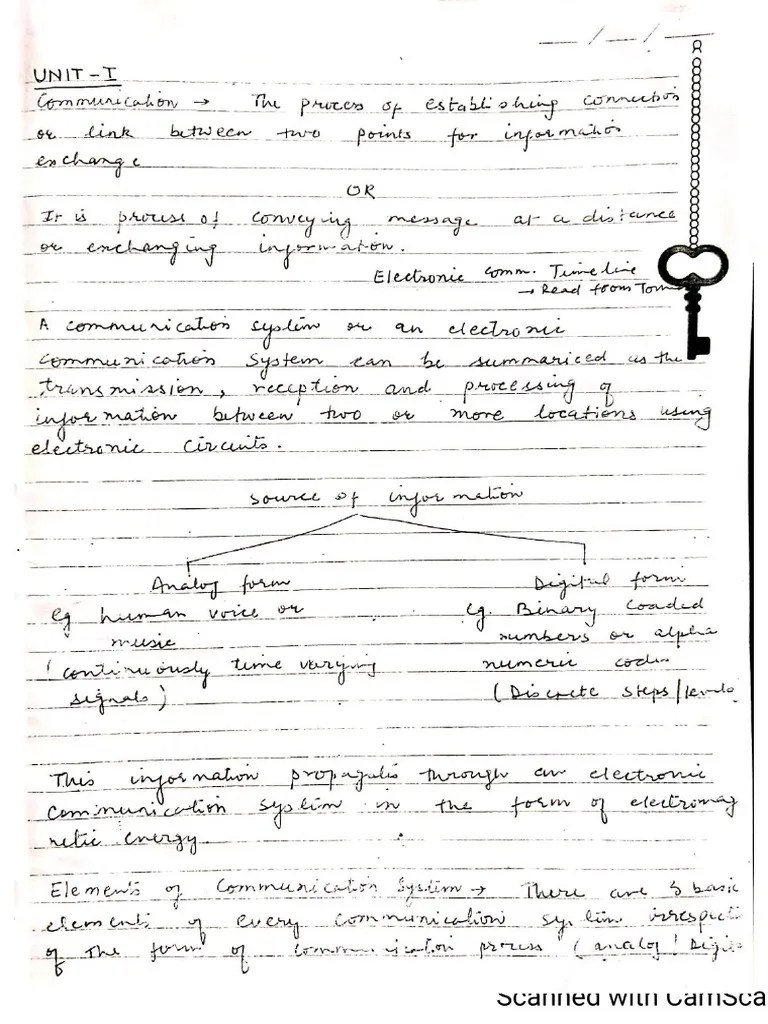 UNIT-I
Communication → The process of establishing connection
or link between two points for information
exchange
OR
It is process of conveying message at a distance
or exchanging information.
Electronic Comm. Timeline
→ Read from Tom
A communication system or an electronic
communication System can be summariced as the
transmission, reception and processing of
information between two or more locations using
electronic circuits.
Source of information
Analog form Digital form
eg human voice or eg. Binary Coaded
music numbers or alpha
(continuously time varying numeric codes
signals) (Discrete steps/levels
This information propagates through an electronic
Communication System in the form of electromag
netic energy.
Elements of Communication System → There are 3 basic
elements of every communication system irrespecti
of the form of communication process (analog/Digit
Scanned with CamSca